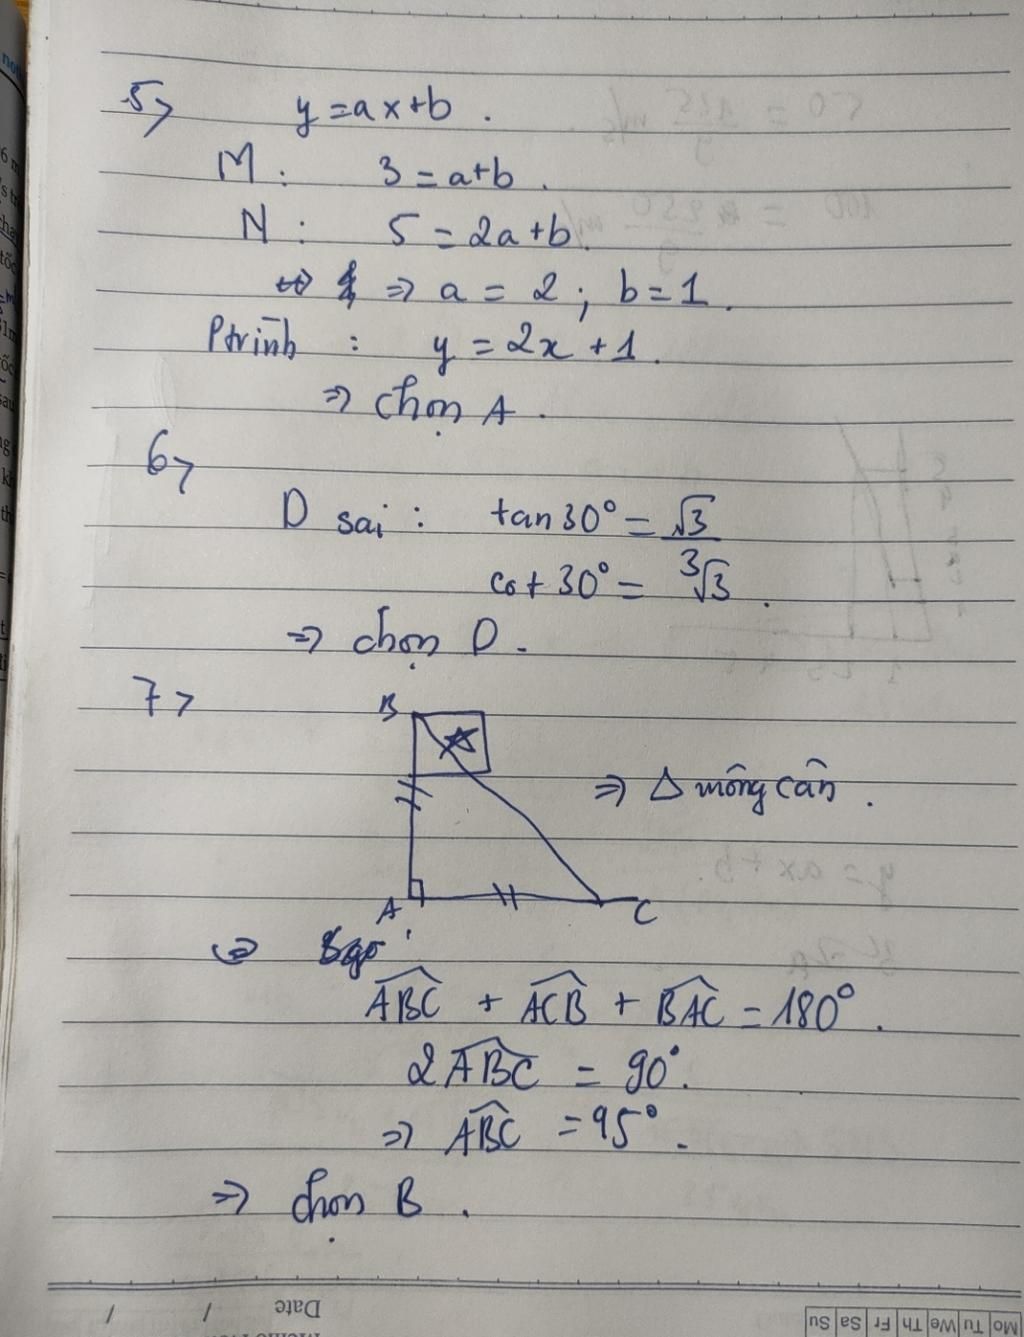 5> y = ax+b.
M: 3 = a+b.
N: 5 = 2a+b.
=> a = 2; b = 1.
Ptrình : y = 2x + 1.
=> chọn A.
6>
D sai : tan 30° = √3
cot 30° = 3√3.
=> chọn D.
7>
B
=> Δ vuông cân.
A C
=>
ABC + ACB + BAC = 180°.
2ABC = 90°.
=> ABC = 95°.
=> chọn B.
Date
Mo Tu We Th Fr Sa Su